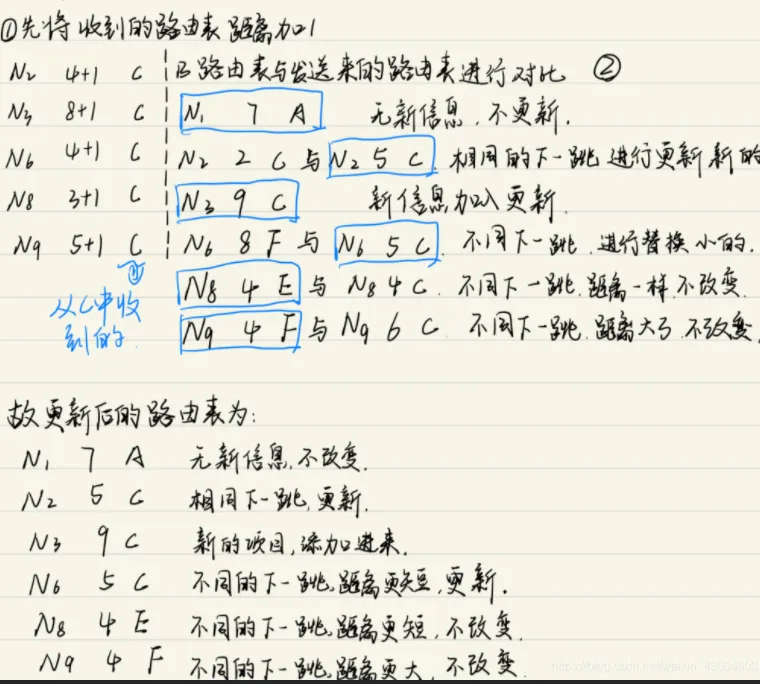 ①先将收到的路由表距离加1
N2 4+1 C B路由表与发送来的路由表进行对比 ②
N3 8+1 C N1 7 A 无新信息,不更新.
N6 4+1 C N2 2 C 与 N2 5 C 相同的下一跳进行更新新的
N8 3+1 C N3 9 C 新信息加入更新.
N9 5+1 C N6 8 F 与 N6 5 C. 不同下一跳,进行替换小的.
① N8 4 E 与 N8 4 C. 不同下一跳,距离一样,不改变.
从C中收到的. N9 4 F 与 N9 6 C. 不同下一跳,距离大了,不改变.
故更新后的路由表为:
N1 7 A 无新信息,不改变.
N2 5 C 相同下一跳,更新.
N3 9 C 新的项目,添加进来.
N6 5 C 不同的下一跳,距离更短,更新.
N8 4 E 不同的下一跳,距离更短,不改变.
N9 4 F 不同的下一跳,距离更大,不改变.